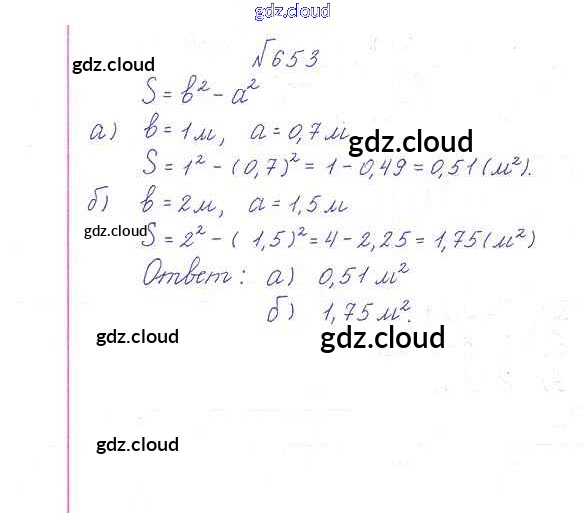 gdz.cloud
№653
gdz.cloud
S = b² - a²
а) b = 1м, a = 0,7м
gdz.cloud
S = 1² - (0,7)² = 1 - 0,49 = 0,51 (м²).
б) b = 2м, a = 1,5м
gdz.cloud
S = 2² - (1,5)² = 4 - 2,25 = 1,75 (м²)
Ответ: а) 0,51 м²
б) 1,75 м².
gdz.cloud gdz.cloud
gdz.cloud